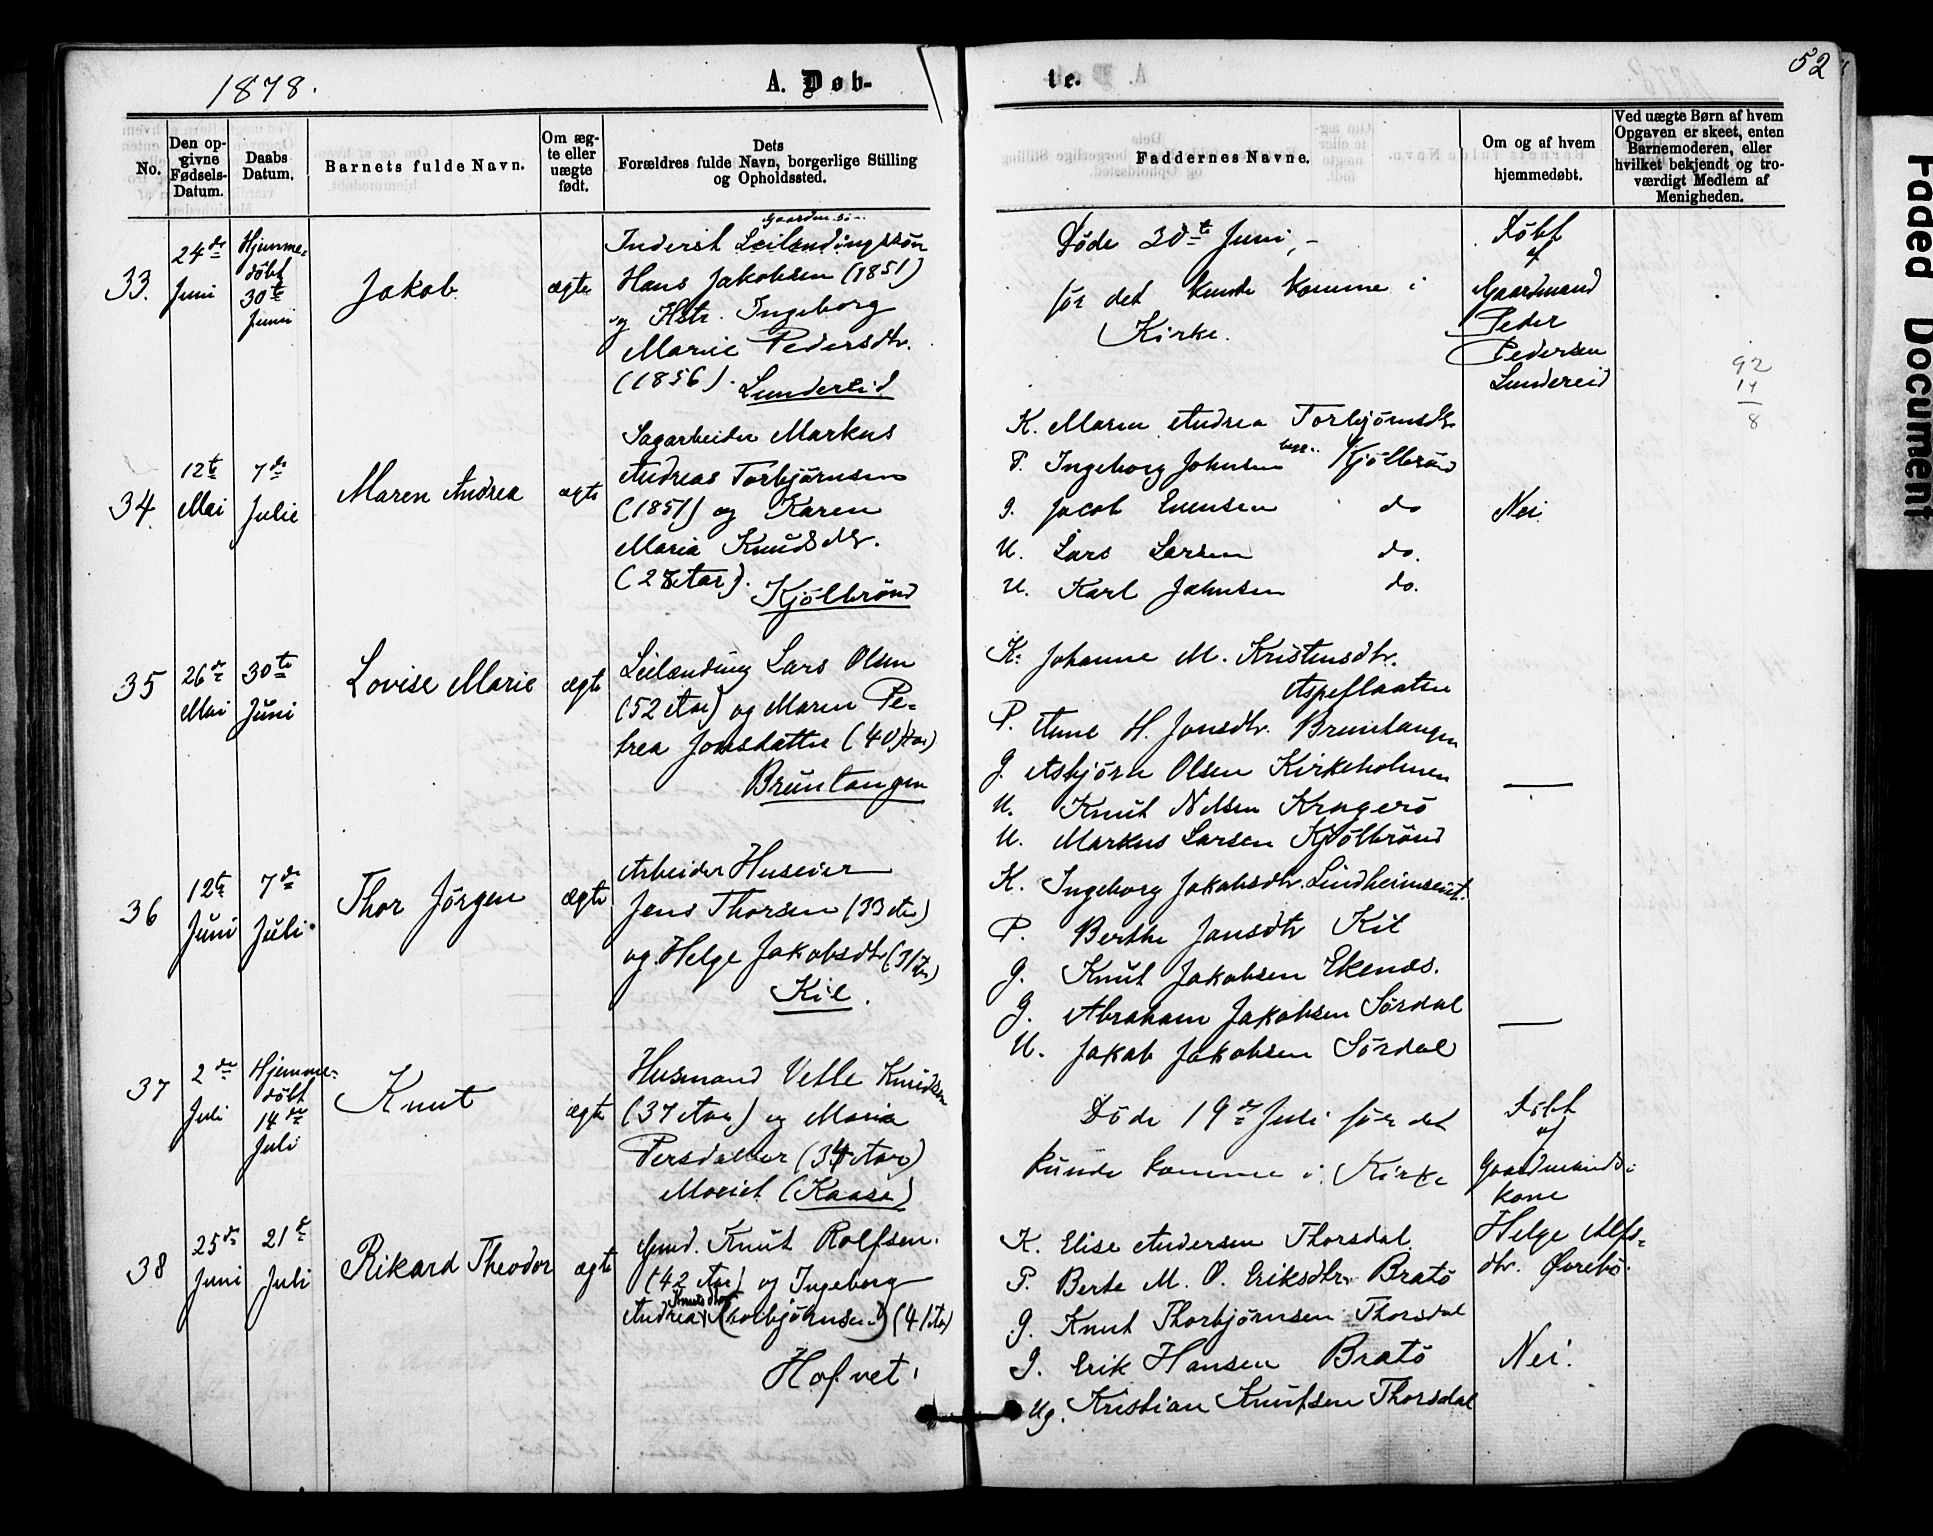 1878.
A. Døb-
te.
52
No.
Den op-
givne
Fødsels-
Datum.
Daabs
Datum.
Barnets fulde Navn.
Om æg-
te eller
uægte
født.
Dets
Forældres fulde Navn, borgerlige Stilling
og Opholdssted.
Faddernes Navne.
Om og af hvem
hjemmedøbt.
Ved uægte Børn af hvem
Opgaven er skeet, enten
Barnemoderen, eller
hvilket bekjendt og tro-
værdigt Medlem af
Menigheden.
33.
24de
Juni
Hjemme-
døbt
30te
Juni
Jakob
ægte
Inderst Leilændingssøn
Hans Jakobsen (1851)
og Hstr. Ingeborg
Marie Pedersdtr.
(1856). Lundereid
Døde 30te Juni, -
før det kunde komme i
Kirke.
Døbt
af
Gaardmand
Peder
Pedersen
Lundereid
92
14
8
34.
12te
Mai
7de
Julie
Maren Andrea
ægte
Sagarbeider Markus
Andreas Torbjørnsen
(1851) og Karen
Maria Knudsdtr.
(28 Aar). Kjølbrønd
K. Maren Andrea Torbjørnsdtr
P. Ingeborg Johnsen Kjølbrønd
G. Jacob Evensen do
U. Lars Larsen do.
U. Karl Johnsen do.
Nei
35
26de
Mai
30te
Juni
Lovise Marie
ægte
Leilænding Lars Olsen
(52 Aar) og Maren Pe-
trea Jonsdatter (40 Aar)
Bruntangen
K. Johanne M. Kristensdtr.
Aspeflaaten
P. Anne H. Jonsdtr. Bruntangen
G. Asbjørn Olsen Kirkeholmen
U. Knut Nilsen Kragerø
U. Markus Larsen Kjølbrønd
—
36
12te
Juni
7de
Juli.
Thor Jørgen
ægte
Arbeider Huseier
Jens Thorsen (33 Aar)
og Helge Jakobsdtr (31 Aar)
Kil.
K. Ingeborg Jakobsdtr. Lindheimseiet.
P. Berthe Jansdtr Kil
G. Knut Jakobsen Ekenæs.
G. Abraham Jakobsen Sørdal
U. Jakob Jakobsen Sørdal
—
37
2den
Juli
Hjemme-
døbt
14de
Juli
Knut
ægte
Husmand Vetle Knudsen
(37 Aar) og Maria
Persdatter (34 Aar)
Moeiet (Kaasa)
Døde 19de Juli før det
kunde komme i Kirke
Døbt
af
Gaardmands-
kone
Helge Alfs-
dtr. Øvrebø.
38
25de
Juni
21de
Juli
Rikard Theodor
ægte
Gmd. Knut Rolfsen.
(42 Aar) og Ingeborg
Knutsdtr
Andrea (Thorbjørnsen) (41 Aar)
Hofvet.
K. Elise Andersen Thorsdal
P. Berte M. O. Eriksdtr. Bratø
G. Knut Thorbjørnsen Thorsdal
G. Erik Hansen Bratø
Ug. Kristian Knutsen Thorsdal
Nei.
Faded Document